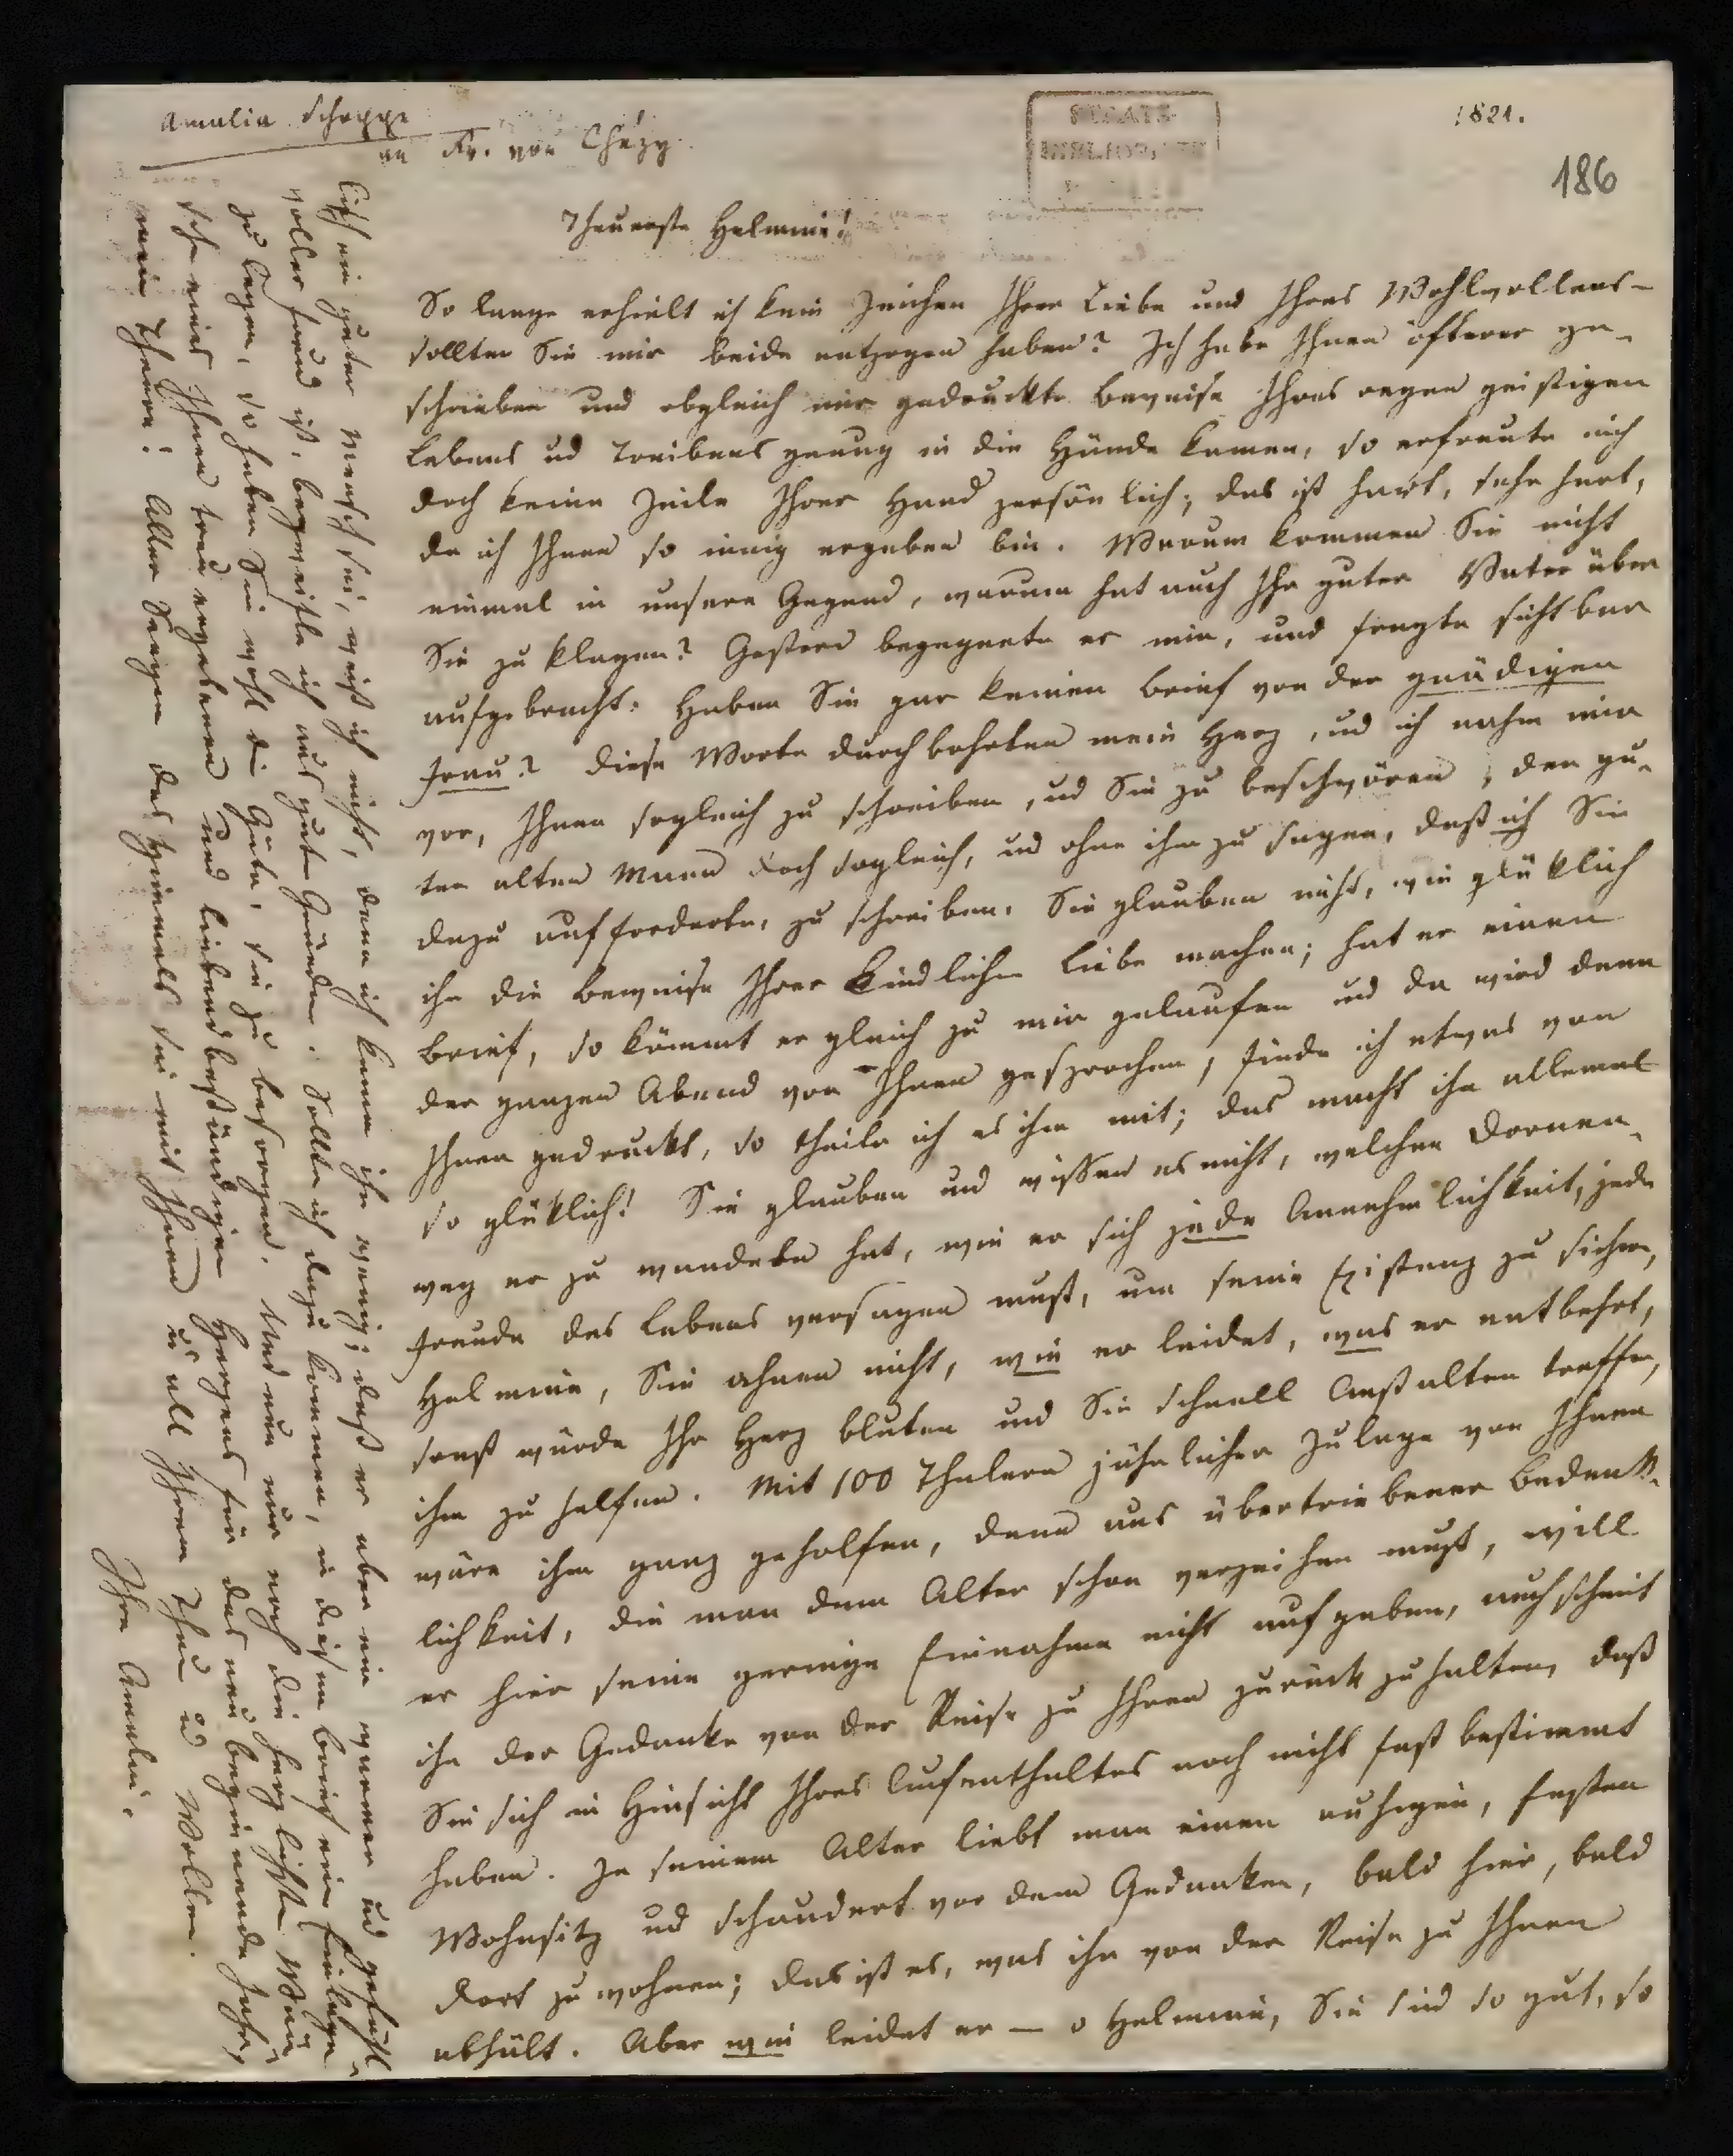 Amalia Schoppe
an Fr. von Chézy.
1821.
186
Theuerste Helmine!
So lange erhielt ich kein Zeichen Ihrer Liebe und Ihres Wohlwollens –
sollten Sie mir beide entzogen haben? Ich habe Ihnen öfterer ge-
schrieben und obgleich mir gedruckte Beweise Ihres regen geistigen
Lebens ud Treibens genug in die Hände kamen, so erfreute mich
doch keine Zeile Ihrer Hand persönlich; das ist hart, sehr hart,
da ich Ihnen so innig ergeben bin. Warum kommen Sie nicht
einmal in unsere Gegend, warum hat auch Ihr guter Vater über
Sie zu klagen? Gestern begegnete er mir, und fragte sichtbar
aufgebracht: Haben Sie gar keinen Brief von der gnädigen
Frau? Diese Worte durchbohrten mein Herz, ud ich nahm mir
vor, Ihnen sogleich zu schreiben, ud Sie zu beschwören, dem gu-
ten alten Mann doch sogleich, ud ohne ihm zu sagen, daß ich Sie
dazu aufforderte, zu schreiben. Sie glauben nicht, wie glüklich
ihn die Beweise Ihrer kindlichen Liebe machen; hat er einen
Brief, so kömmt er gleich zu mir gelaufen und da wird denn
den ganzen Abend von Ihnen gesprochen, finde ich etwas von
Ihnen gedruckt, so theile ich es ihm mit; das macht ihn allemal
so glüklich! Sie glauben und wissen es nicht, welchen Dornen-
weg er zu wandeln hat, wie er sich jede Annehmlichkeit, jede
Freude des Lebens versagen muß, um seine Existenz zu sichern,
Helmine, Sie ahnen nicht, wie er leidet, was er entbehrt,
sonst würde Ihr Herz bluten und Sie schnell Anstalten treffen,
ihm zu helfen. Mit 100 Thalern jährlicher Zulage von Ihnen
wäre ihm ganz geholfen, denn aus übertriebener Bedenk-
lichkeit, die man dem Alter schon verzeihen muß, will
er hier seine geringe Einnahme nicht aufgeben, auch scheint
ihn der Gedanke von der Reise zu Ihnen zurück zu halten, daß
Sie sich in Hinsicht Ihres Aufenthaltes noch nicht fest bestimmt
haben. In seinem Alter liebt man einen ruhigen, festen
Wohnsitz ud schaudert vor dem Gedanken, bald hier, bald
dort zu wohnen; das ist es, was ihn von der Reise zu Ihnen
abhält. Aber wie leidet er – o Helmine, Sie sind so gut, so
ein guter Mensch sei, weiß ich nicht, denn ich kenne ihn wenig; daß er aber ein warmer ud gefühl-
voller Freund ist, bezweifle ich aus guten Gründen. Sollte ich dazu kommen, in diesen Brief eine Einlage
zu legen, so haben Sie wohl die Güte, sie zu besorgen. Und nun nur noch die herzlichsten Wün-
sche eines Ihnen treu ergebenen und liebend beständigen Herzens für das neu beginnende Jahr,
mein Theure! Aller Seegen des Himmels sei mit Ihnen u all Ihrem Thun u Wollen.
Ihre Amalie.